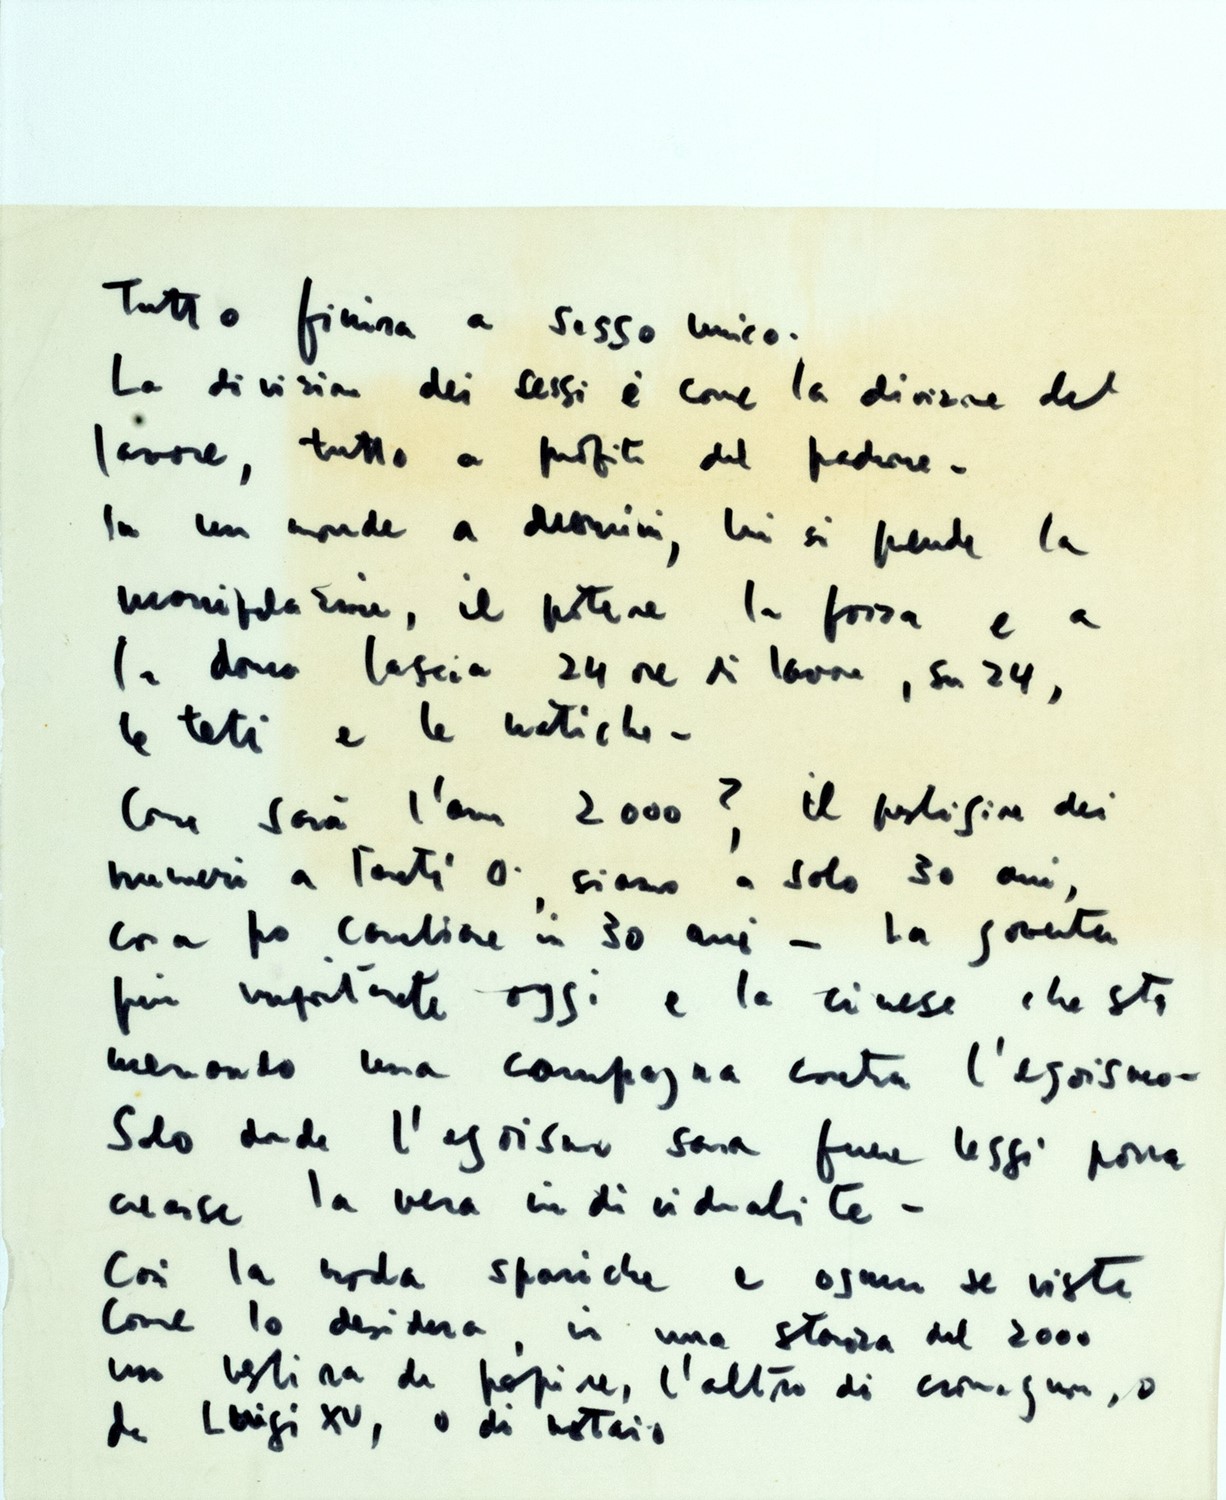 Tutto finira a sesso unico.
La division dei sessi è come la divisione del
lavore, tutto a profit del padrone -
In un monde a uomini, lui si prende la
manipolazione, il potere la forza e a
la donna lascia 24 ore di lavore, su 24,
le teti e le natiche -
Come sarà l'ann 2000?, il prestigine dei
numeri a tanti 0., siamo a solo 30 anni,
cosa po cambiare in 30 anni - La gioventu
più importante oggi e la cinese che sta
menando una campagna contra l'egoismo -
Solo onde l'egoismo sara fuore leggi porra
crearse la vera individualite -
Cosi la moda spariche e ognun se viste
Come lo desidera, in una stanza del 2000
uno vestira da papire, l'altro di cromagnon, o
da Luigi XV, o di notaio